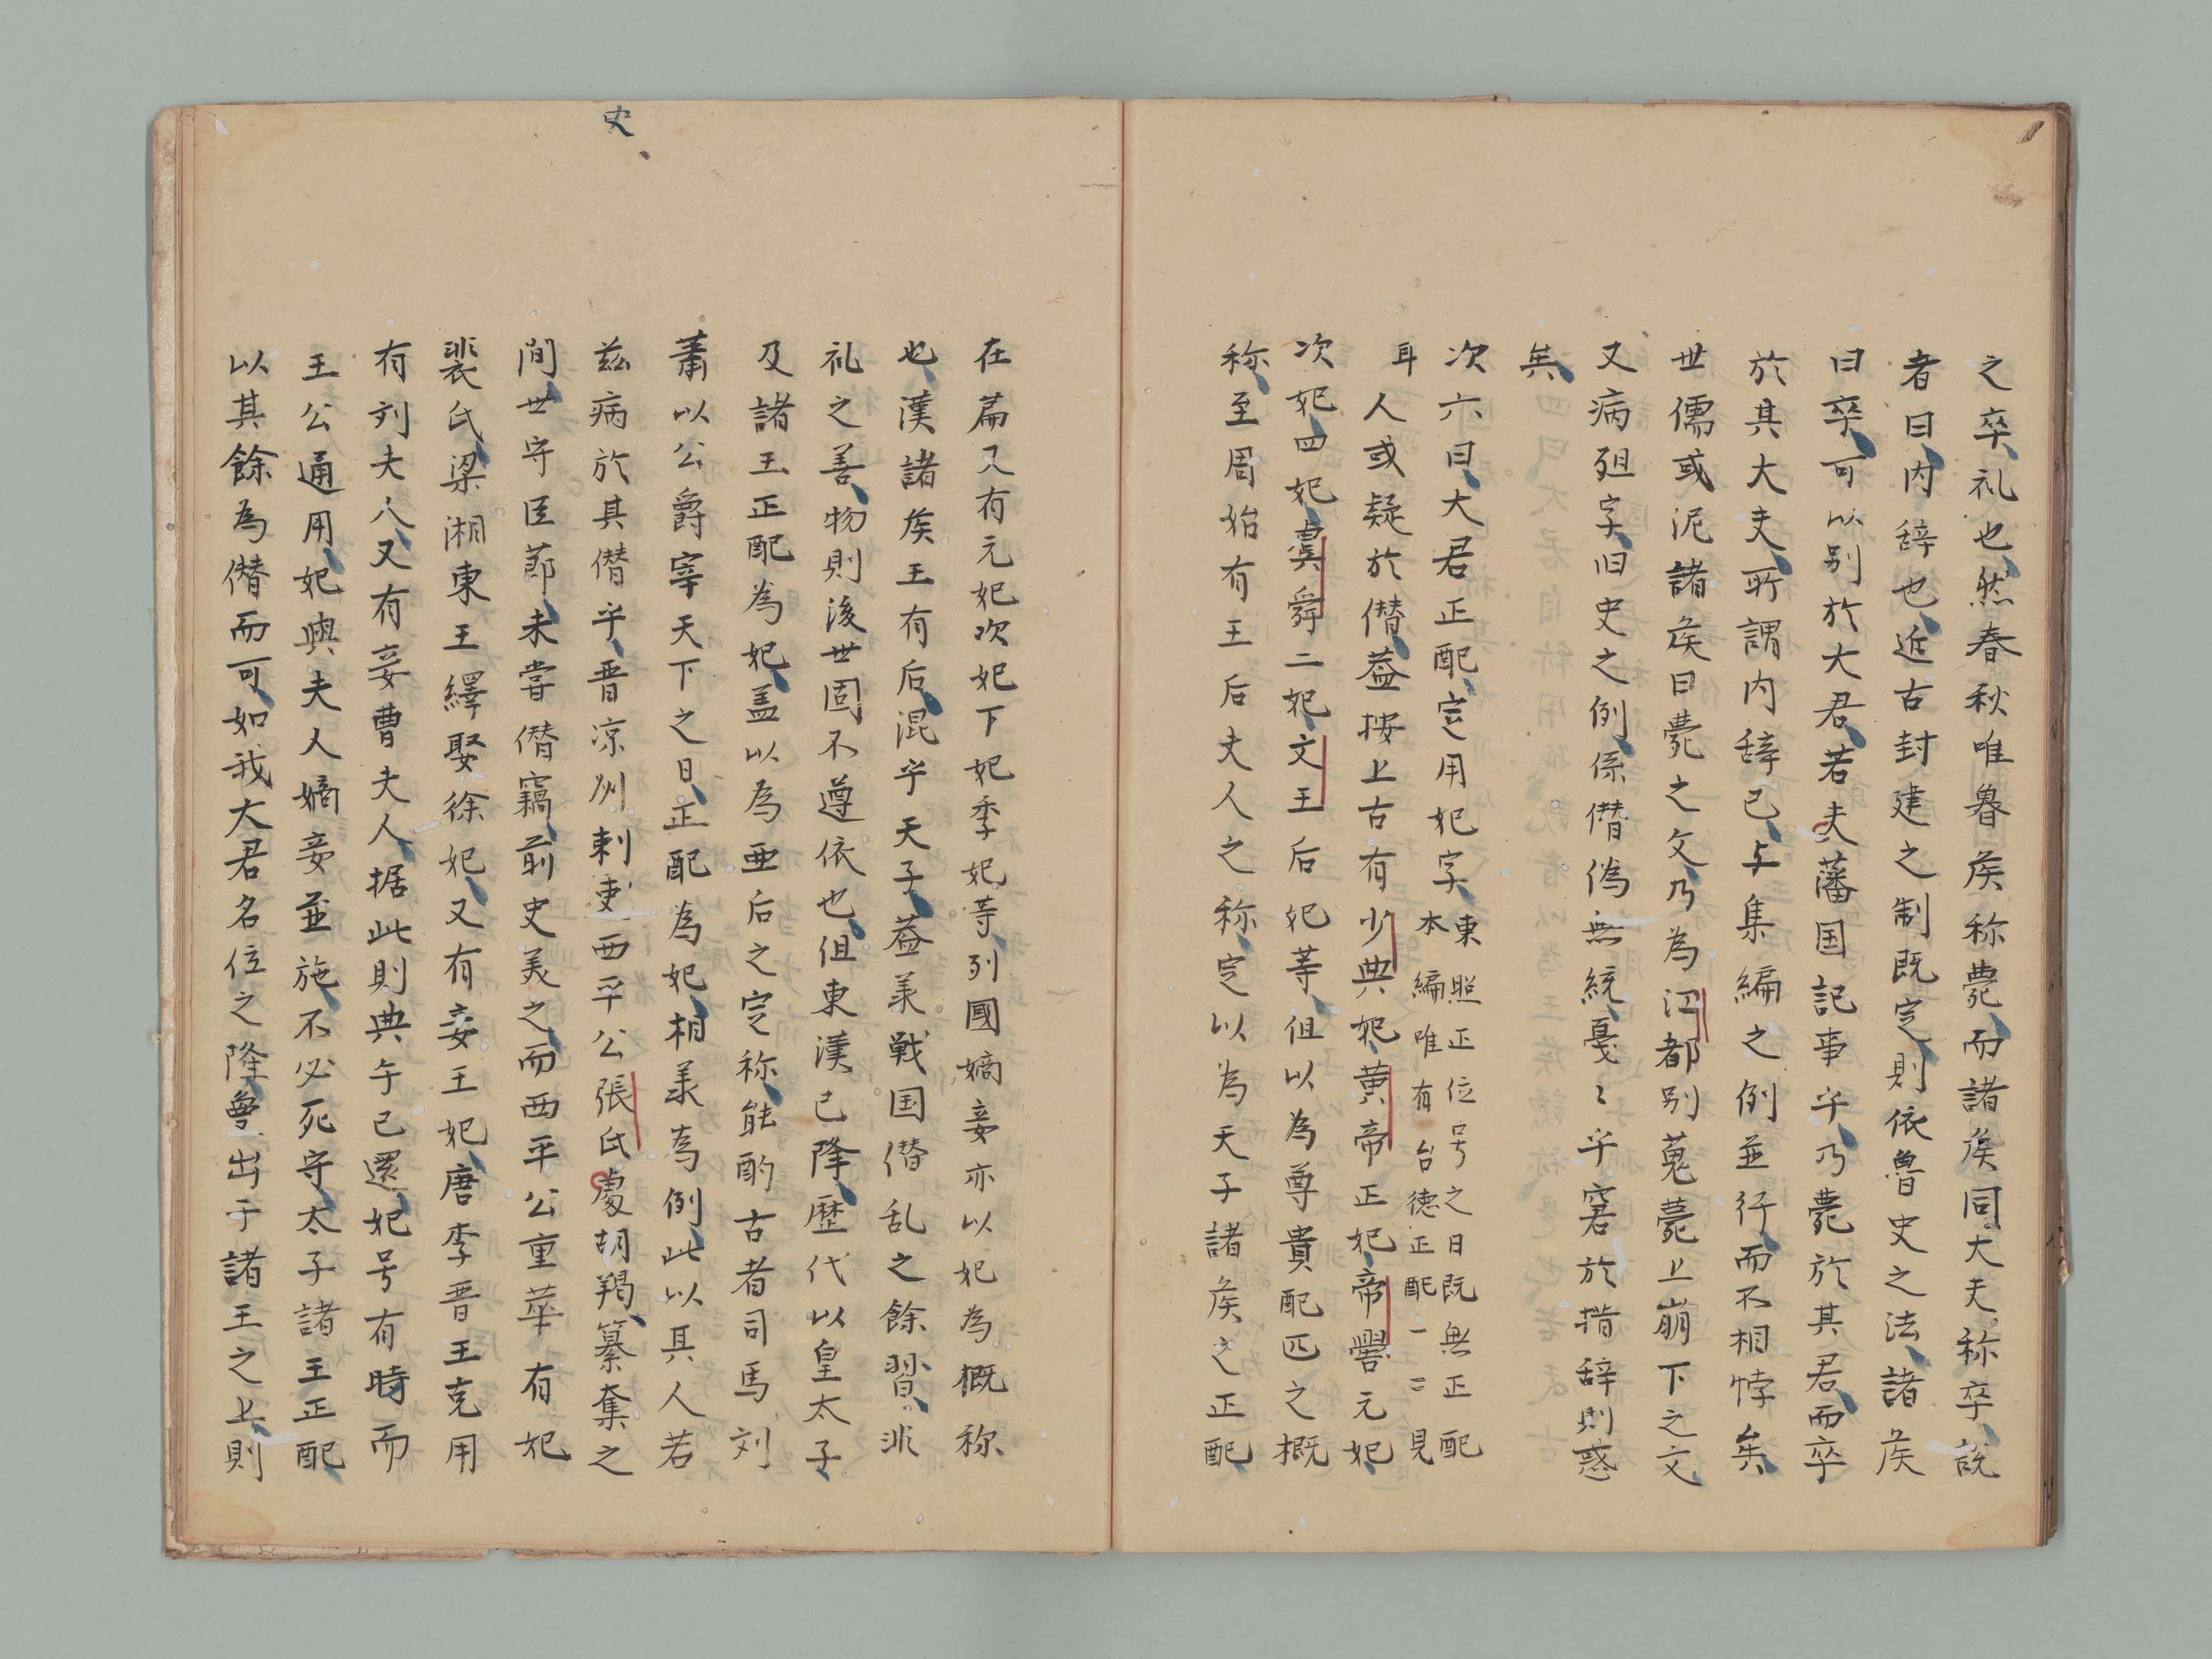 之卒、礼也、然春秋唯魯侯称薨、而諸侯同大夫、称卒、説
者曰、内辞也、近古封建之制既定、則依魯史之法、諸侯
曰卒、可以別於大君、若夫藩国記事乎、乃薨於其君、而卒
於其大夫、所謂内辞已、与集編之例並行、而不相悖矣、
世儒或泥諸侯曰薨之文、乃為江都別蒐薨上崩下之文、
又病殂字、旧史之例、係僭偽無統、戛々乎窘於措辞、則惑
矣、
次六曰、大君正配、定用妃字、東照正位号之日既無正配
本編唯有台徳正配一二見
耳人或疑於僭、蓋按上古有少典妃、黄帝正妃、帝嚳元妃、
次妃四妃、虞舜二妃、文王后妃等、但以為尊貴配匹之概
称、至周始有王后夫人之称、定以為天子諸侯之正配、
在篇又有元妃次妃下妃季妃等、列國嫡妾亦以妃為概称
也、漢諸侯王有后、混乎天子、蓋承戦国僭乱之餘習、非
礼之善物、則後世固不遵依也、但東漢已降、歴代以皇太子
及諸王正配為妃、蓋以為亜后之定称、能酌古者司馬刘
蕭以公爵宰天下之日、正配為妃、相承為例、此以其人若
茲病於其僭乎、晋凉州刺吏西平公張氏處胡羯、簒奪之
史、
間、世守臣節、未嘗僭竊、前史美之、而西平公重華有妃
裴氏、梁湘東王繹娶徐妃、又有妾王妃、唐李晋王克用
有刘夫人、又有妾曹夫人、据此則典午已還、妃号有時而
王公通用、妃與夫人嫡妾並施、不必死守、太子諸王正配、
以其餘為僭而可、如我大君名位之隆、敻出于諸王之上、則